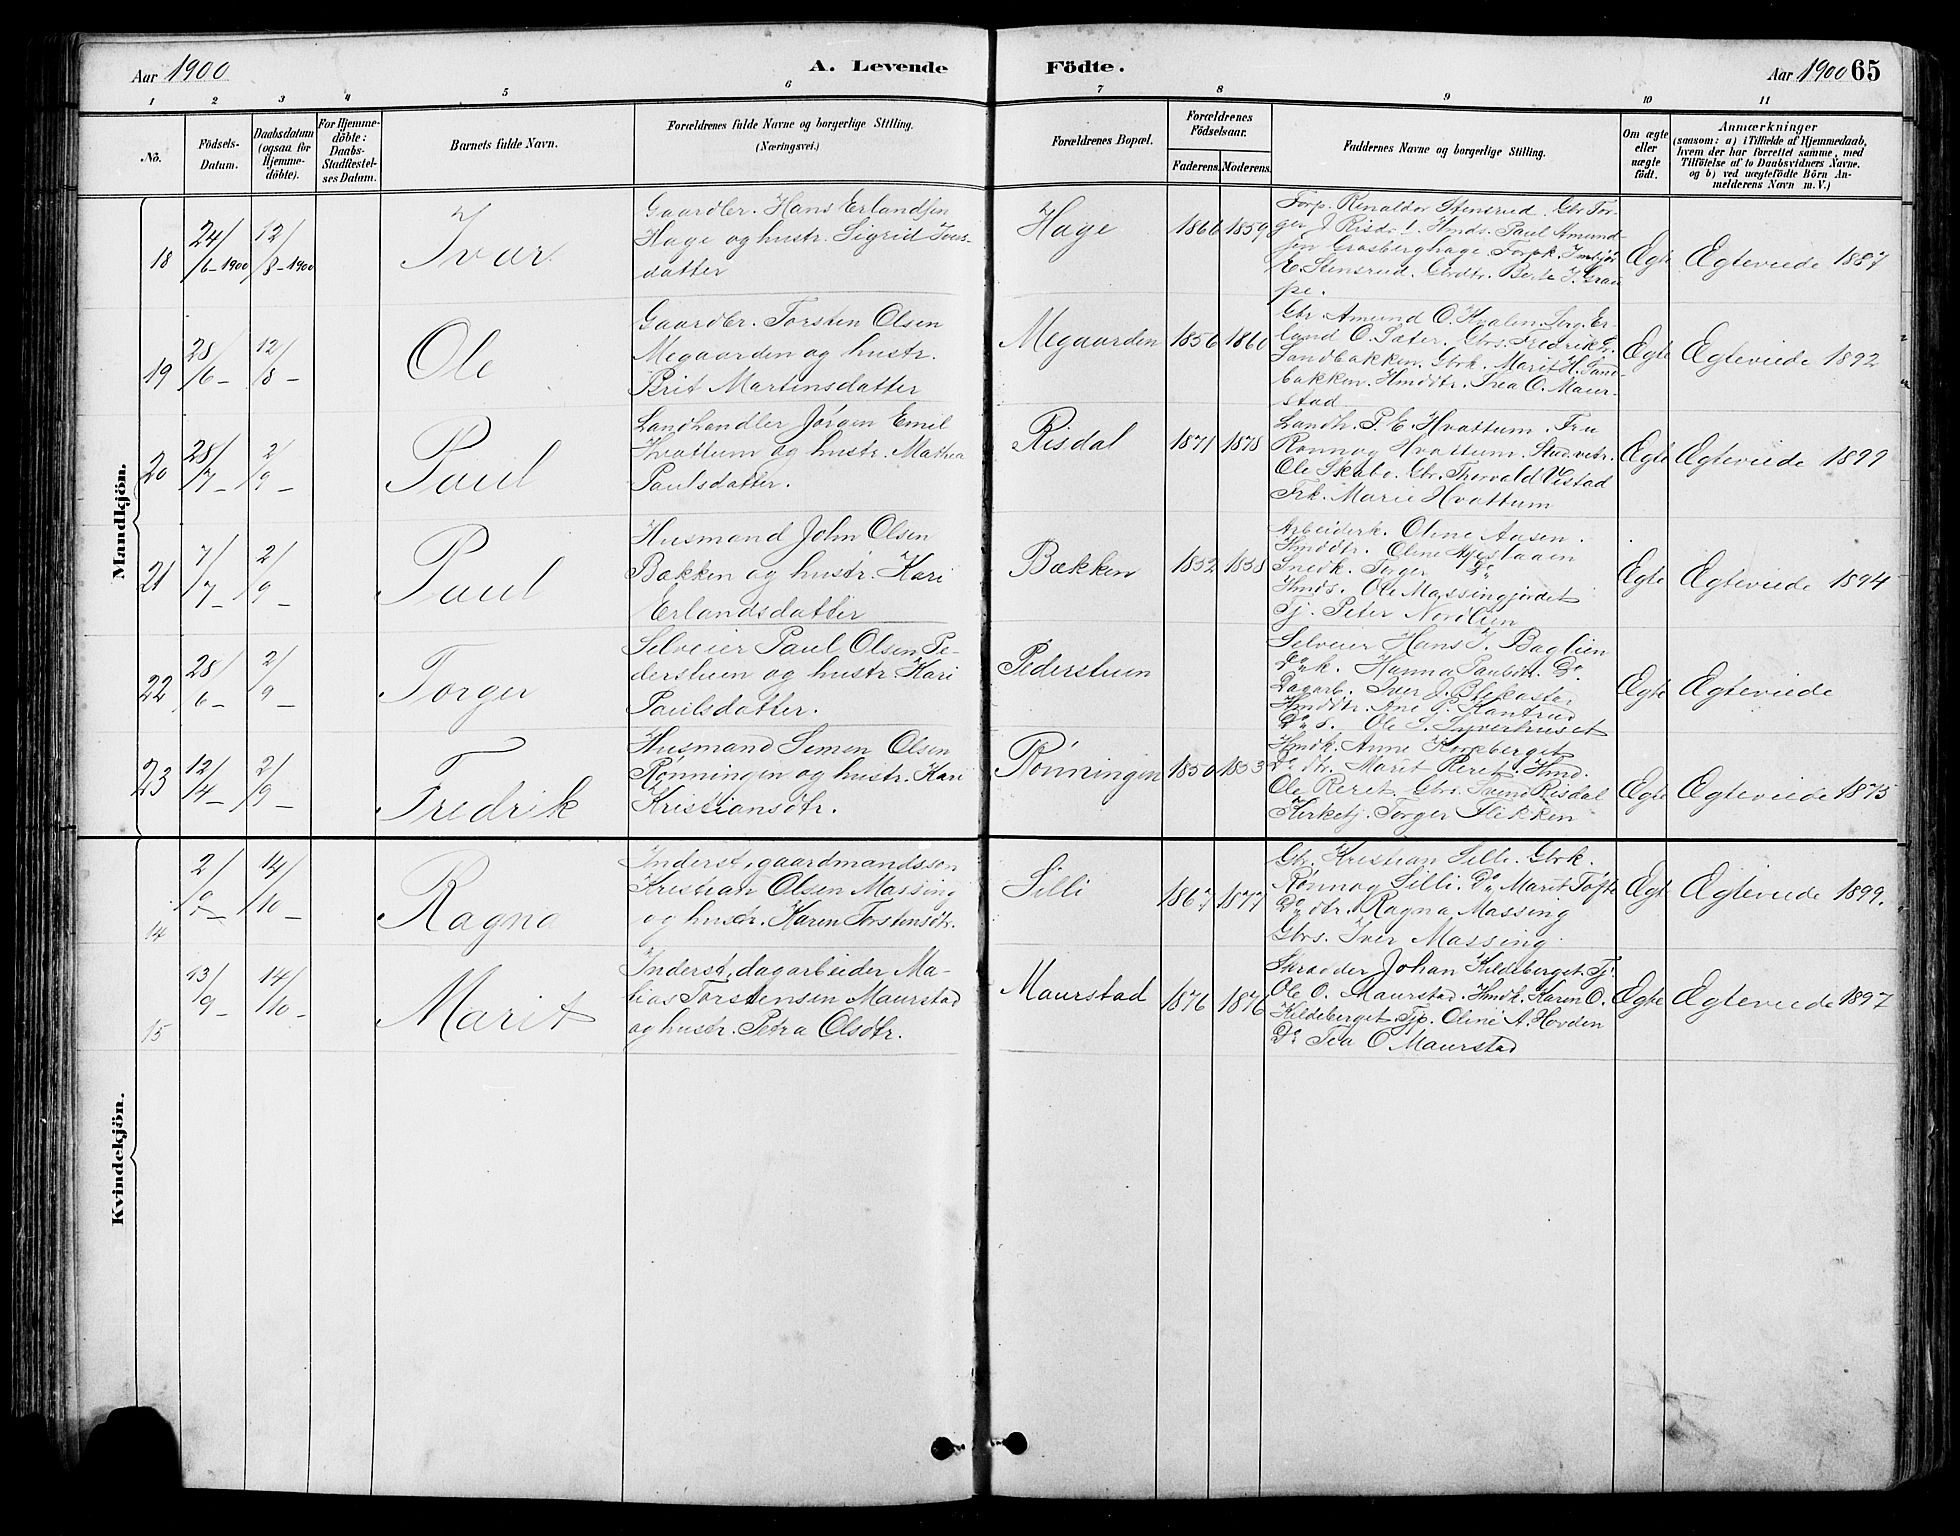 Aar 1900
A. Levende Födte.
Aar 1900 65
1 2 3 4 5 6 7 8 9 10 11
No.
Födsels-Datum.
Daabsdatum (ogsaa for Hjemme-döbte).
For Hjemme-döbte: Daabs-Stadfæstel-ses Datum.
Barnets fulde Navn.
Forældrenes fulde Navne og borgerlige Stilling.
(Næringsvei.)
Forældrenes Bopæl.
Forældrenes Födselsaar.
Faderens. Moderens.
Faddernes Navne og borgerlige Stilling.
Om ægte eller uægte födt.
Anmærkninger
(saasom: a) i Tilfælde af Hjemmedaab,
hvem der har forrettet samme, med
Tilföielse af to Daabsvidners Navne.
og b) ved uægtefödte Börn An-
melderens Navn m. V.)
Mandkjön.
18 24/6-1900 12/8-1900 Ivar
Gaardbr. Hans Erlandsen
Hage og hustr. Sigrid Ivers-
datter
Hage 1860 1859
Forp. Rinaldor Stensrud. Gbr Tor-
ger J Risd. Hmds. Paul Amund-
sen Graaberghage. Forpk.
E. Stensrud. Gbrdtr. Berte J.
pe.
Egte Egteviede 1887
19 28/6- 12/8- Ole
Gaardbr. Torsten Olsen
Megaarden og hustr.
Brit Martinsdatter
Megaarden 1856 1860
Gbr Amund O. Kvalen. Er-
land O. Sater. Gbrs. Fredrik
Sandbakken. Gbrk. Marit H. Sand-
bakken. Hmddtr. Thea O. Maur-
stad
Egte Egteviede 1892
20 28/7- 2/9- Paul
Landhandler Jørgen Emil
Hvattum og hustr. Mathea
Paulsdatter.
Risdal 1871 1878
Landh. P. E. Hvattum. Fru
Rønnog Hvattum. Stud.
Ole Skabo. Gbr. Thorvald Vistad
Frk. Marie Hvattum
Egte Egteviede 1899
21 7/7- 2/9- Paul
Husmand John Olsen
Bakken og hustr. Kari
Erlandsdatter
Bakken 1852 1858
Arbeiderk. Oline Aasen.
Hmddtr. Oline
Snedk. Torger Do
Hmds. Ole Massingjordet
Tj. Peter Nordlien
Egte Egteviede 1894
22 28/6- 2/9- Torger
Selveier Paul Olsen Pe-
derstuen og hustr Kari
Paulsdatter.
Pederstuen
Selveier Hans J. Baglien
Do k. Hanna Paulsdtr. Do.
Dagarb. Iver J.
Hmddtr. Ane P. Kantrud
Do s. Ole S.
Egte Egteviede
23 12/4- 2/9- Fredrik
Husmand Simen Olsen
Rønningen og hustr. Kari
Kristiansdtr.
Rønningen 1850 1853
Hmdk. Anne
Do dtr. Marit Reret. Hmd.
Ole Reret. Gbrs. Svend Risdal
Kirketj. Torger Flekken
Egte Egteviede 1875
Kvindekjön.
14 14/10- Ragna
Inderst, gaardmandsson
Kristian Olsen Massing
og hustr. Karen Torstensdtr.
Silli 1867 1877
Gbr. Kristian Silli. Gbrk.
Rønnog Silli. Do Marit Tøfte
Do dtr. Ragna Massing
Gbrs. Iver Massing.
Egte Egteviede 1899.
15 13/9- 14/10- Marit
Inderst, dagarbeider Ma-
tias Torstensen Maurstad
og hustr. Petra Olsdtr.
Maurstad 1876 1876
Skradder Johan Kildeberget. Tj.
Ole O. Maurstad. Hmdk. Karen O.
Kildeberget Tjp. Oline A. Hovden
Do Tea O Maurstad
Egte Egteviede 1897